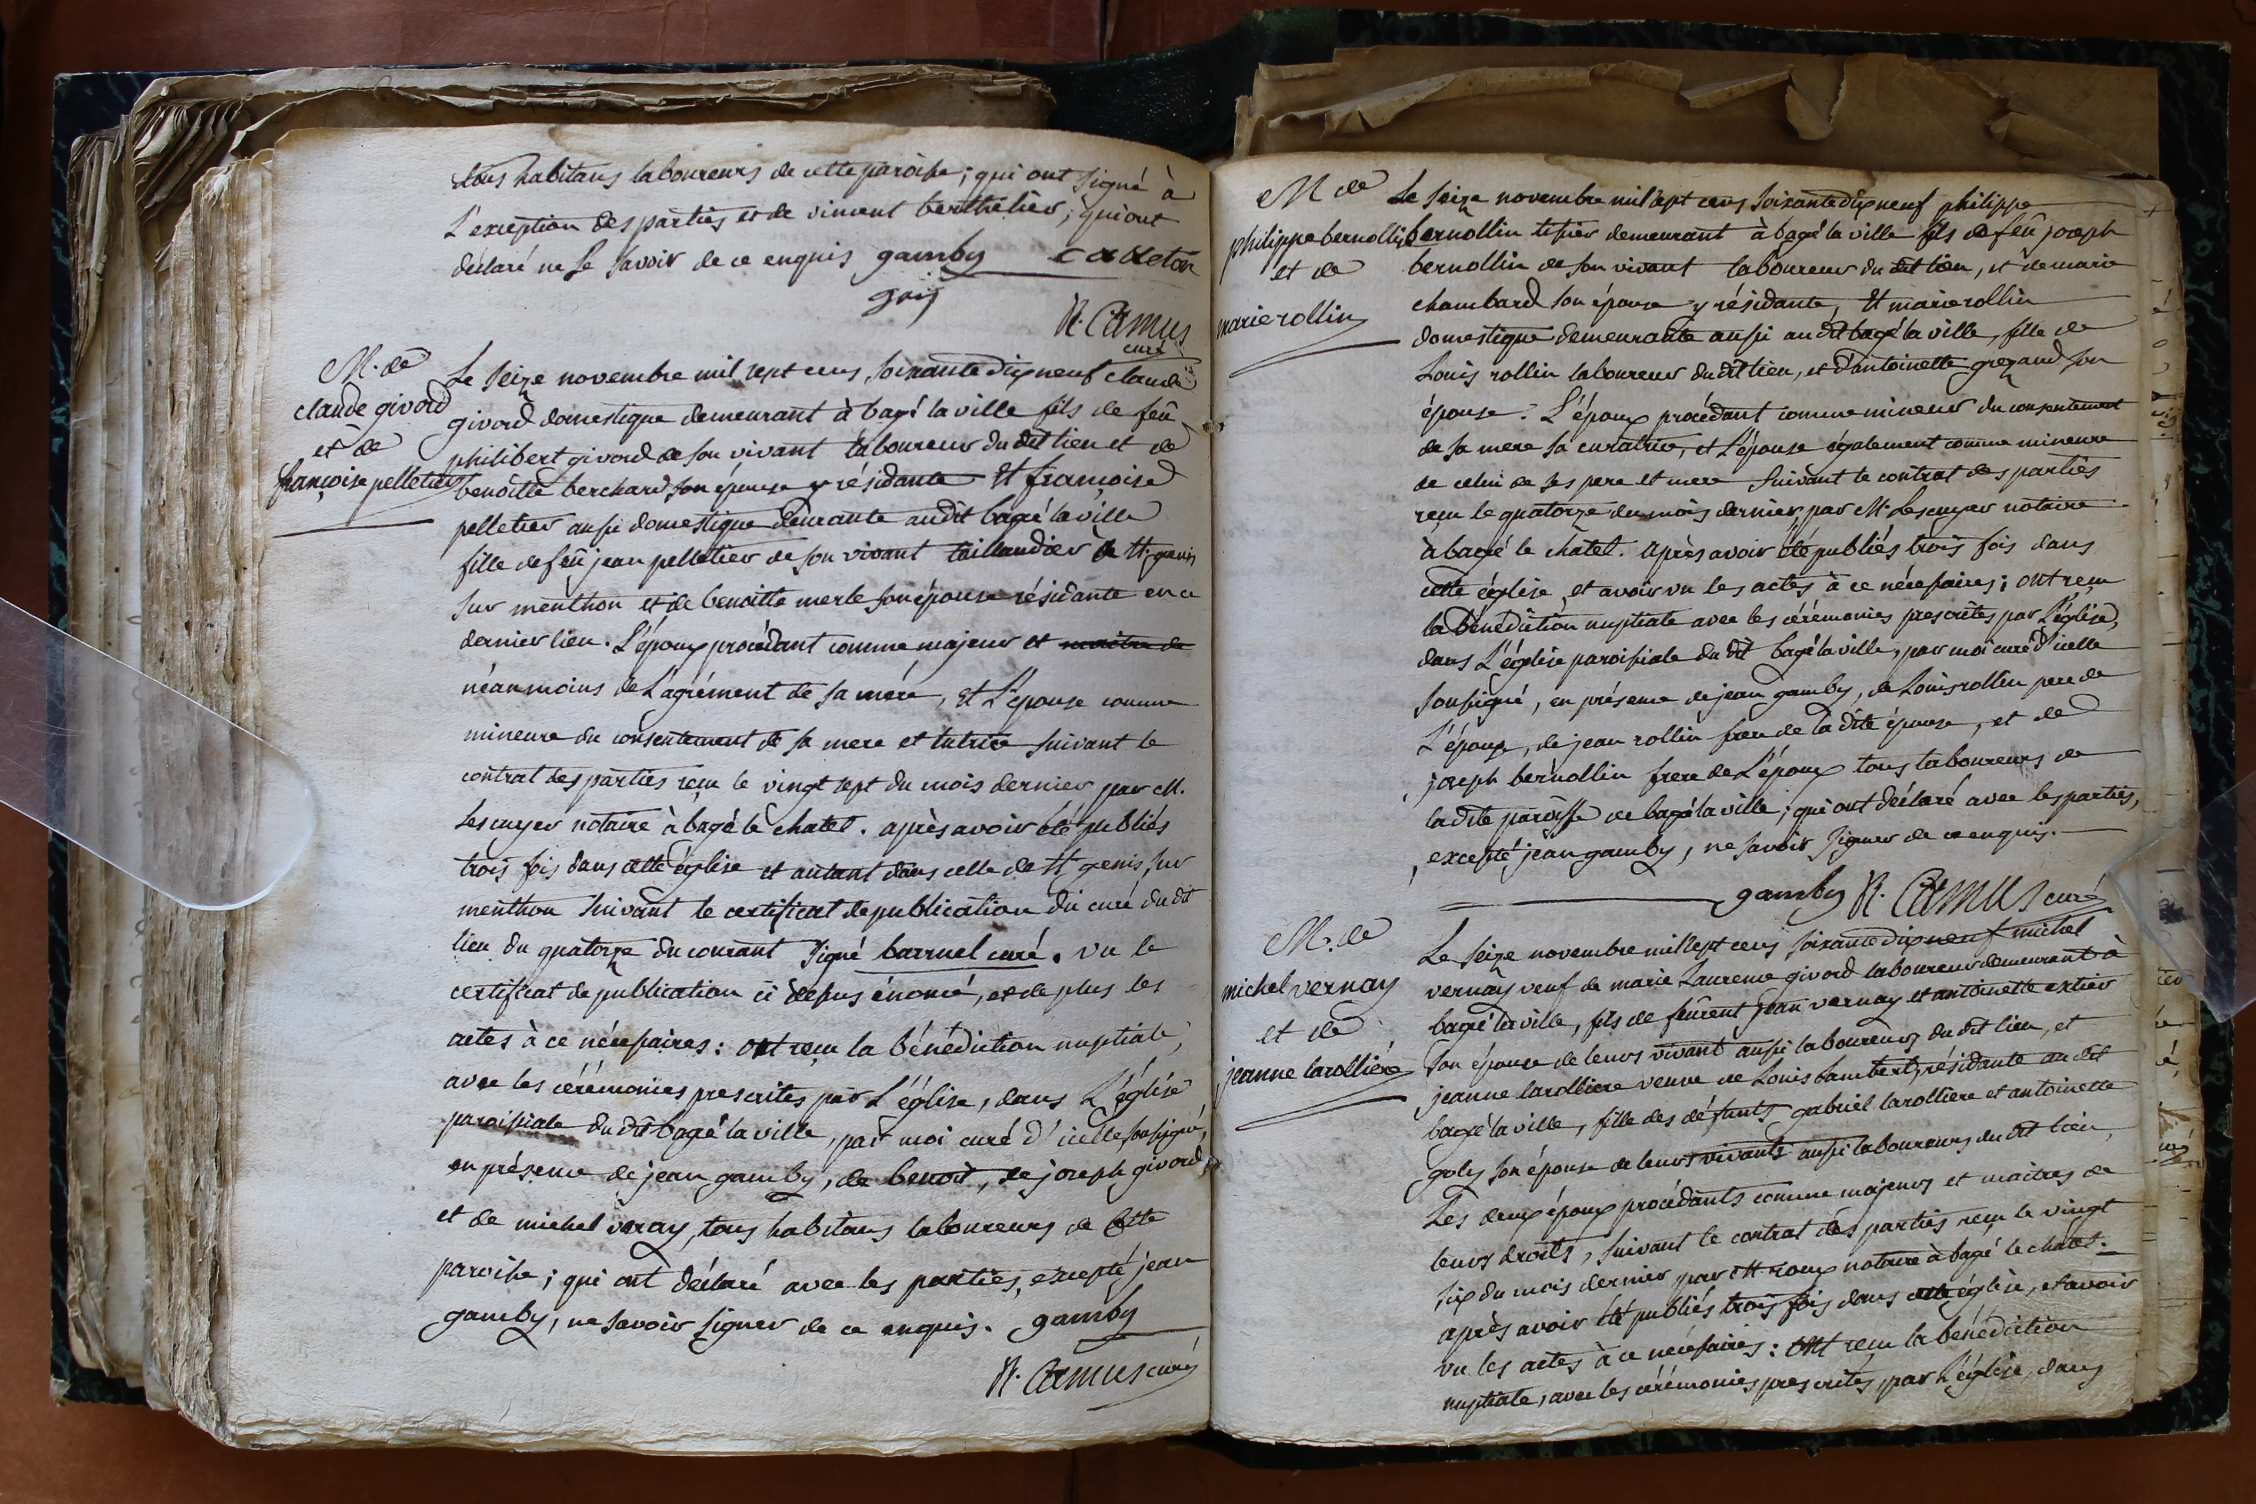 tous habitans laboureurs de cette paroisse; qui ont signé à
L'exception des parties et de vincent berthelier, qui ont
déclaré ne le savoir de ce enquis gamby cadeton
R. Camus
curé
M. de
claude givord
et de
françoise pelletier
Le seize novembre mil sept cens soixante dix neuf claude
givord domestique demeurant à bagé la ville fils de feû
philibert givord de son vivant laboureur du dit lieu et de
benoitte berchard son épouse y résidante et françoise
pelletier aussi domestique demeurante audit bagé la ville
fille de feû jean pelletier de son vivant taillandier de St genis
sur menthon et de benoitte merle son épouse résidante en ce
dernier lieu. L'époux procédant comme majeur et maitre de
néanmoins de L'agrément de sa mere, et L'épouse comme
mineure du consentement de sa mere et tutrice suivant le
contrat des parties reçu le vingt sept du mois dernier par M.
Lescuyer notaire à bagé le chatel. après avoir été publiés
trois fois dans cette église et autant dans celle de St genis sur
menthon suivant le certificat de publication du curé du dit
lieu du quatorze du courant signé barruel curé. vu le
certificat de publication ci dessus énoncé, et de plus les
actes à ce nécessaires: ont reçu la bénédiction nuptiale,
avec les cérémonies prescrites par L'église, dans L'église
paroissiale du dit bagé la ville, par moi curé d'icelle soussigné,
en présence de jean gamby, de benoit, de joseph givord
et de michel veray, tous habitans laboureurs de cette
paroisse; qui ont déclaré avec les parties, excepté jean
gamby, ne savoir signer de ce enquis. gamby
R. Camus curé
M de
philippe bernollin
et de
marie rollin
Le seize novembre mil sept cens soixante dix neuf philippe
bernollin tissier demeurant à bagé la ville fils de feû joseph
bernollin de son vivant laboureur du dit lieu, et de marie
chambard son épouse y résidante, et marie rollin
domestique demeurante aussi audit bagé la ville, fille de
Louis rollin laboureur du dit lieu, et d'antoinette grezaud son
épouse. L'époux procédant comme mineur du consentement
de sa mere sa curatrice, et L'épouse également comme mineure
de celui de ses pere et mere suivant le contrat des parties
reçu le quatorze du mois dernier par M. Lescuyer notaire
à bagé le chatel. après avoir été publiés trois fois dans
cette église, et avoir vu les actes à ce nécessaires; ont reçu
la bénédiction nuptiale avec les cérémonies prescrites par L'église,
dans L'église paroissiale du dit bagé la ville, par moi curé d'icelle
soussigné, en présence de jean gamby, de Louis rollin pere de
L'épouse, de jean rollin frere de la dite épouse, et de
joseph bernollin frere de L'époux tous laboureurs de
la dite paroisse de bagé la ville; qui ont déclaré avec les parties,
excepté jean gamby, ne savoir signer de ce enquis.
gamby R. Camus curé
M. de
michel vernay
et de
jeanne larolliere
Le seize novembre mil sept cens soixante dix neuf michel
vernay veuf de marie Laurence givord laboureur demeurant à
bagé la ville, fils de feûrent jean vernay et antoinette extier
son épouse de leurs vivant aussi laboureurs du dit lieu, et
jeanne larolliere veuve de Louis Lambert, résidante au dit
bagé la ville, fille des défunts gabriel larolliere et antoinette
goly son épouse de leurs vivants aussi laboureurs du dit lieu,
Les deux époux procédants comme majeurs et maitres de
leurs droits, suivant le contrat des parties reçu le vingt
six du mois dernier par M roux notaire à bagé le chatel.
après avoir été publiés trois fois dans cette église, et avoir
vu les actes à ce nécessaires: ont reçu la bénédiction
nuptiale, avec les cérémonies prescrites par L'église, dans